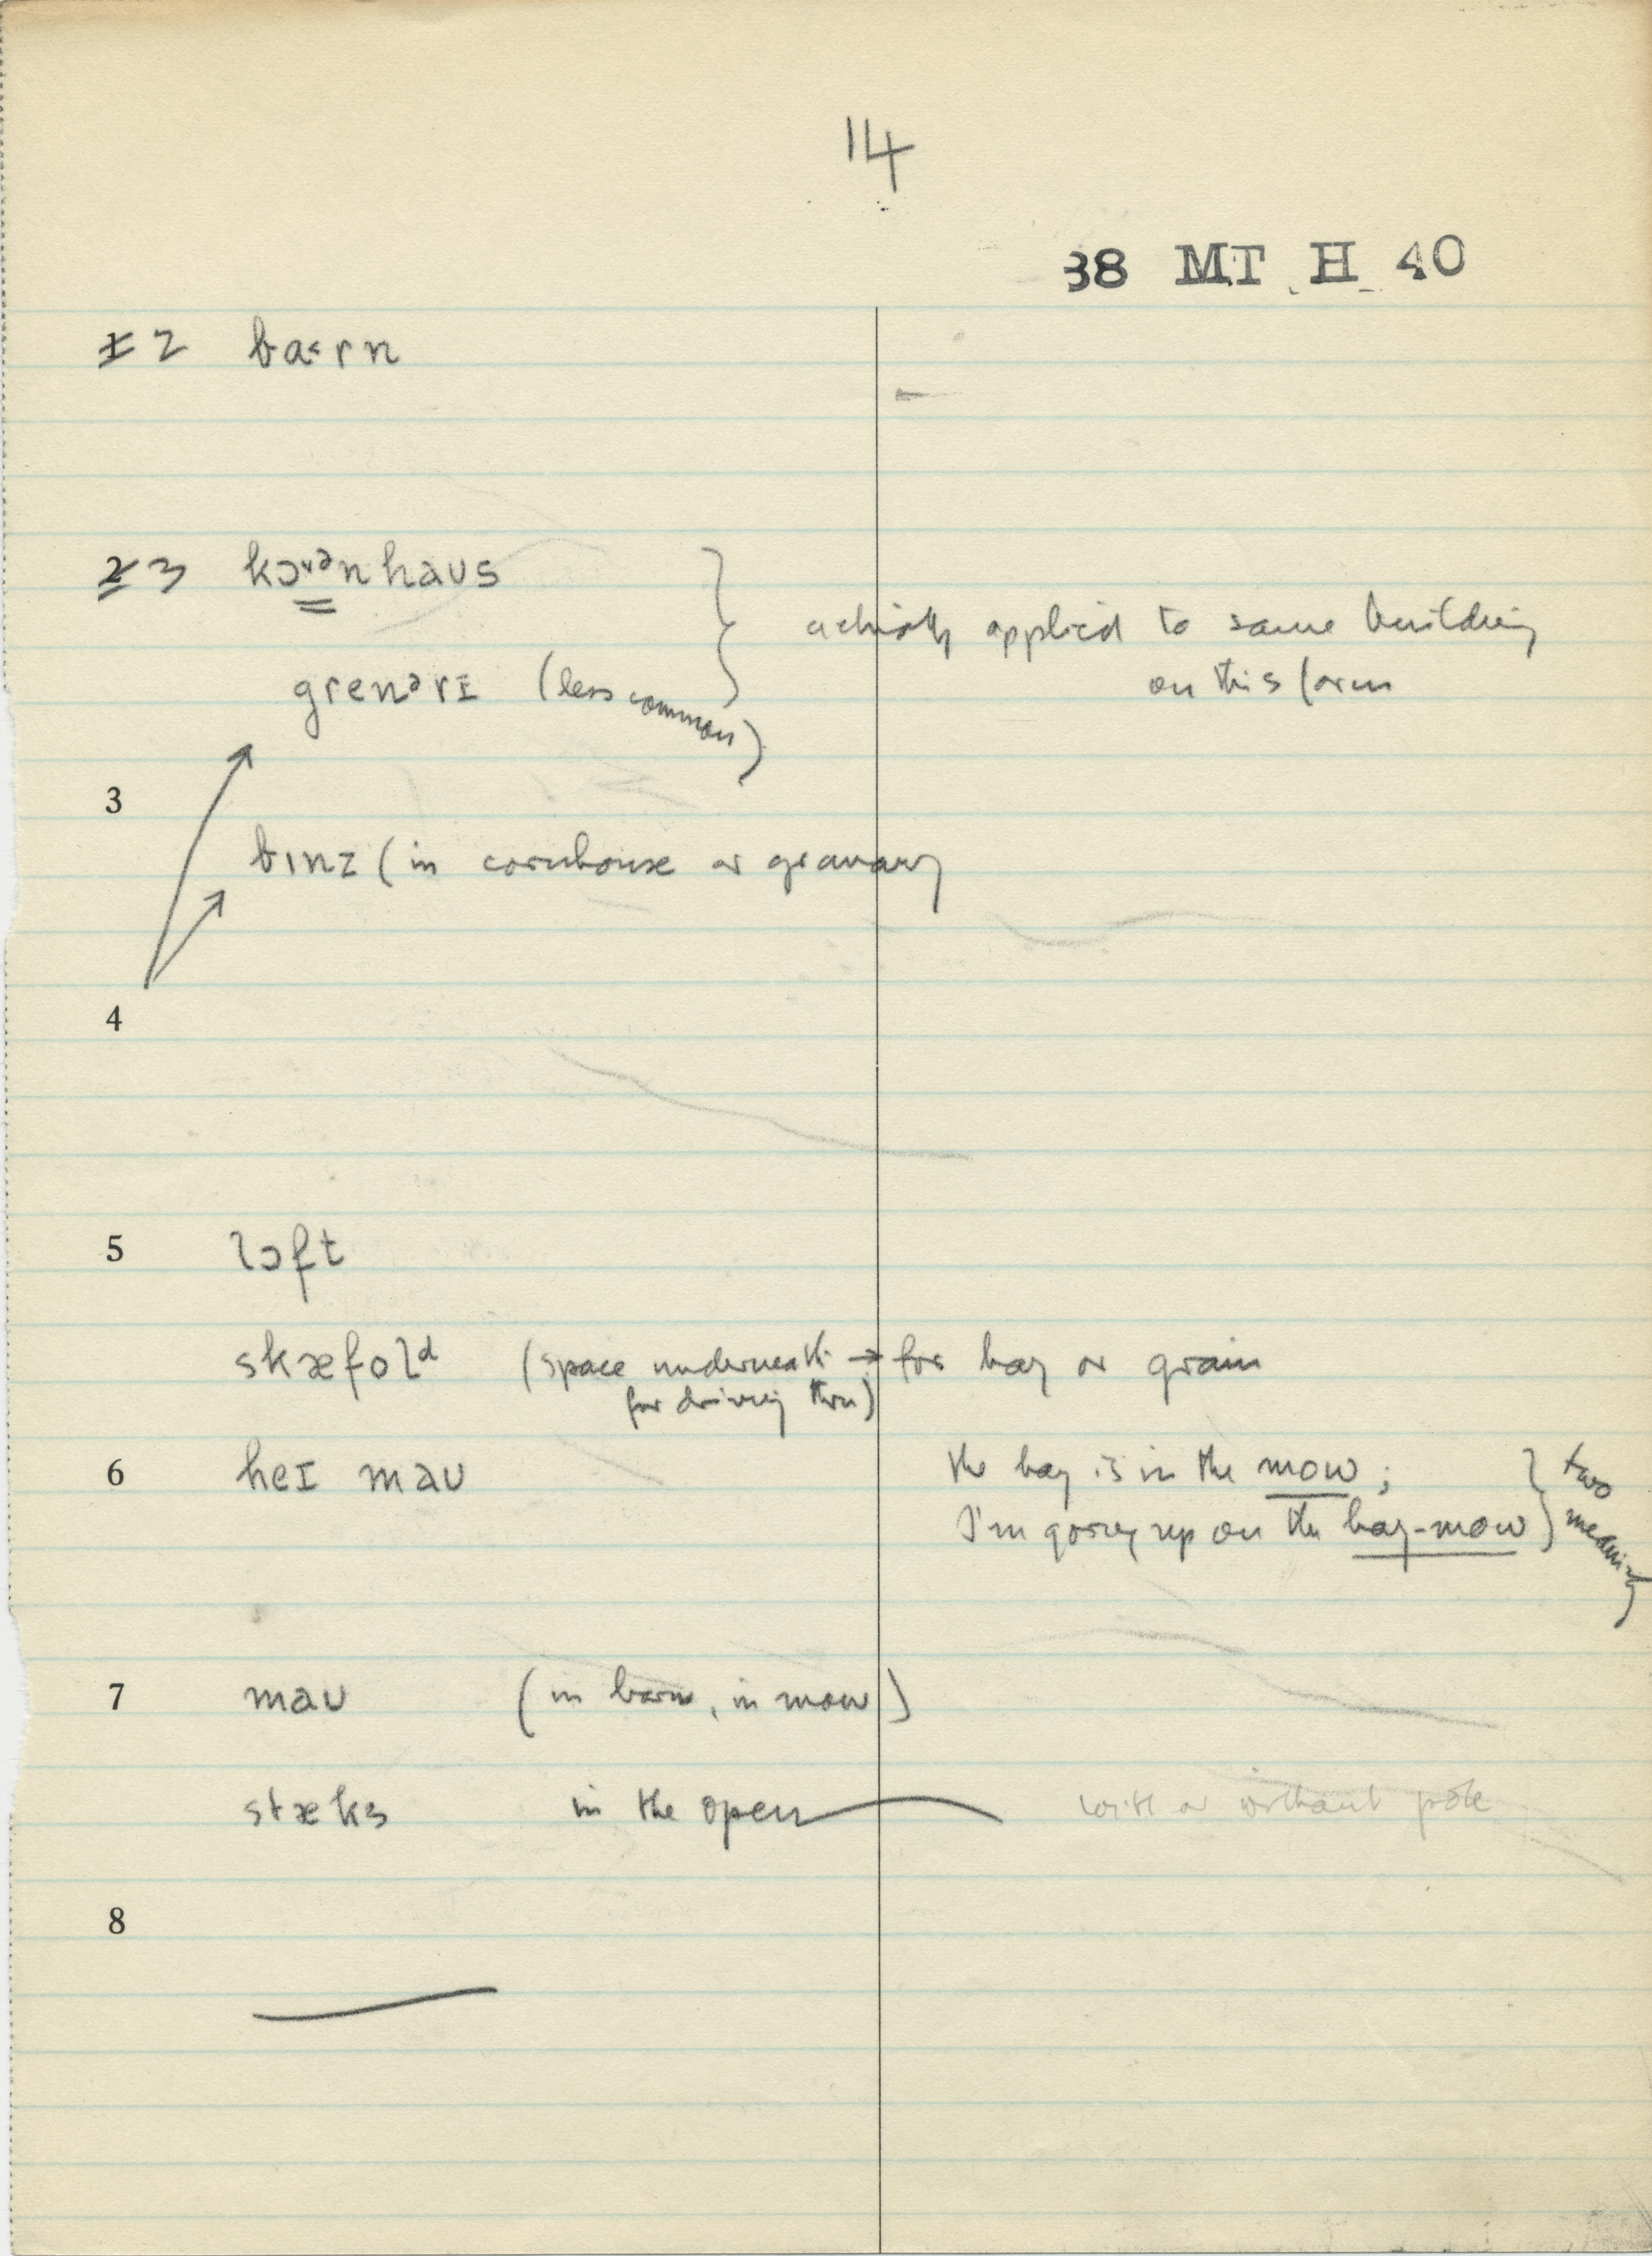 14
38 MT H 40
1 2 ba˂rn
2 3 kɔᶷᵊnhaʊs
actually applied to same building
on this farm
grenᵊrɪ (less common)
3
bɪnz (in cornhouse or granary
4
5 lɔft
skæfolᵈ (space underneath → for hay or grain
for driving thru)
6 heɪ maʊ the hay is in the mow;
I'm going up on the hay-mow } two meanings
7 maʊ (in barn, in mow)
stæks in the open with or without pole
8